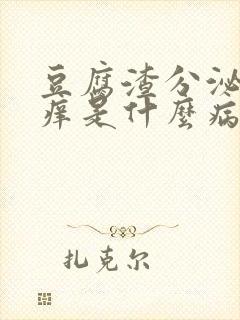 豆腐渣分泌
痒是什麼病
扎克尔